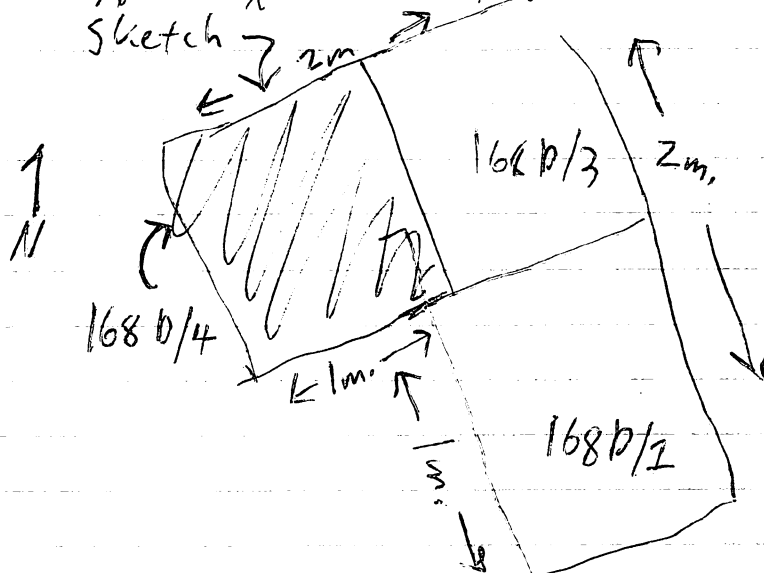 Sketch
2m
168 D/3
2m.
N
168 D/4
1m.
1m.
168 D/1